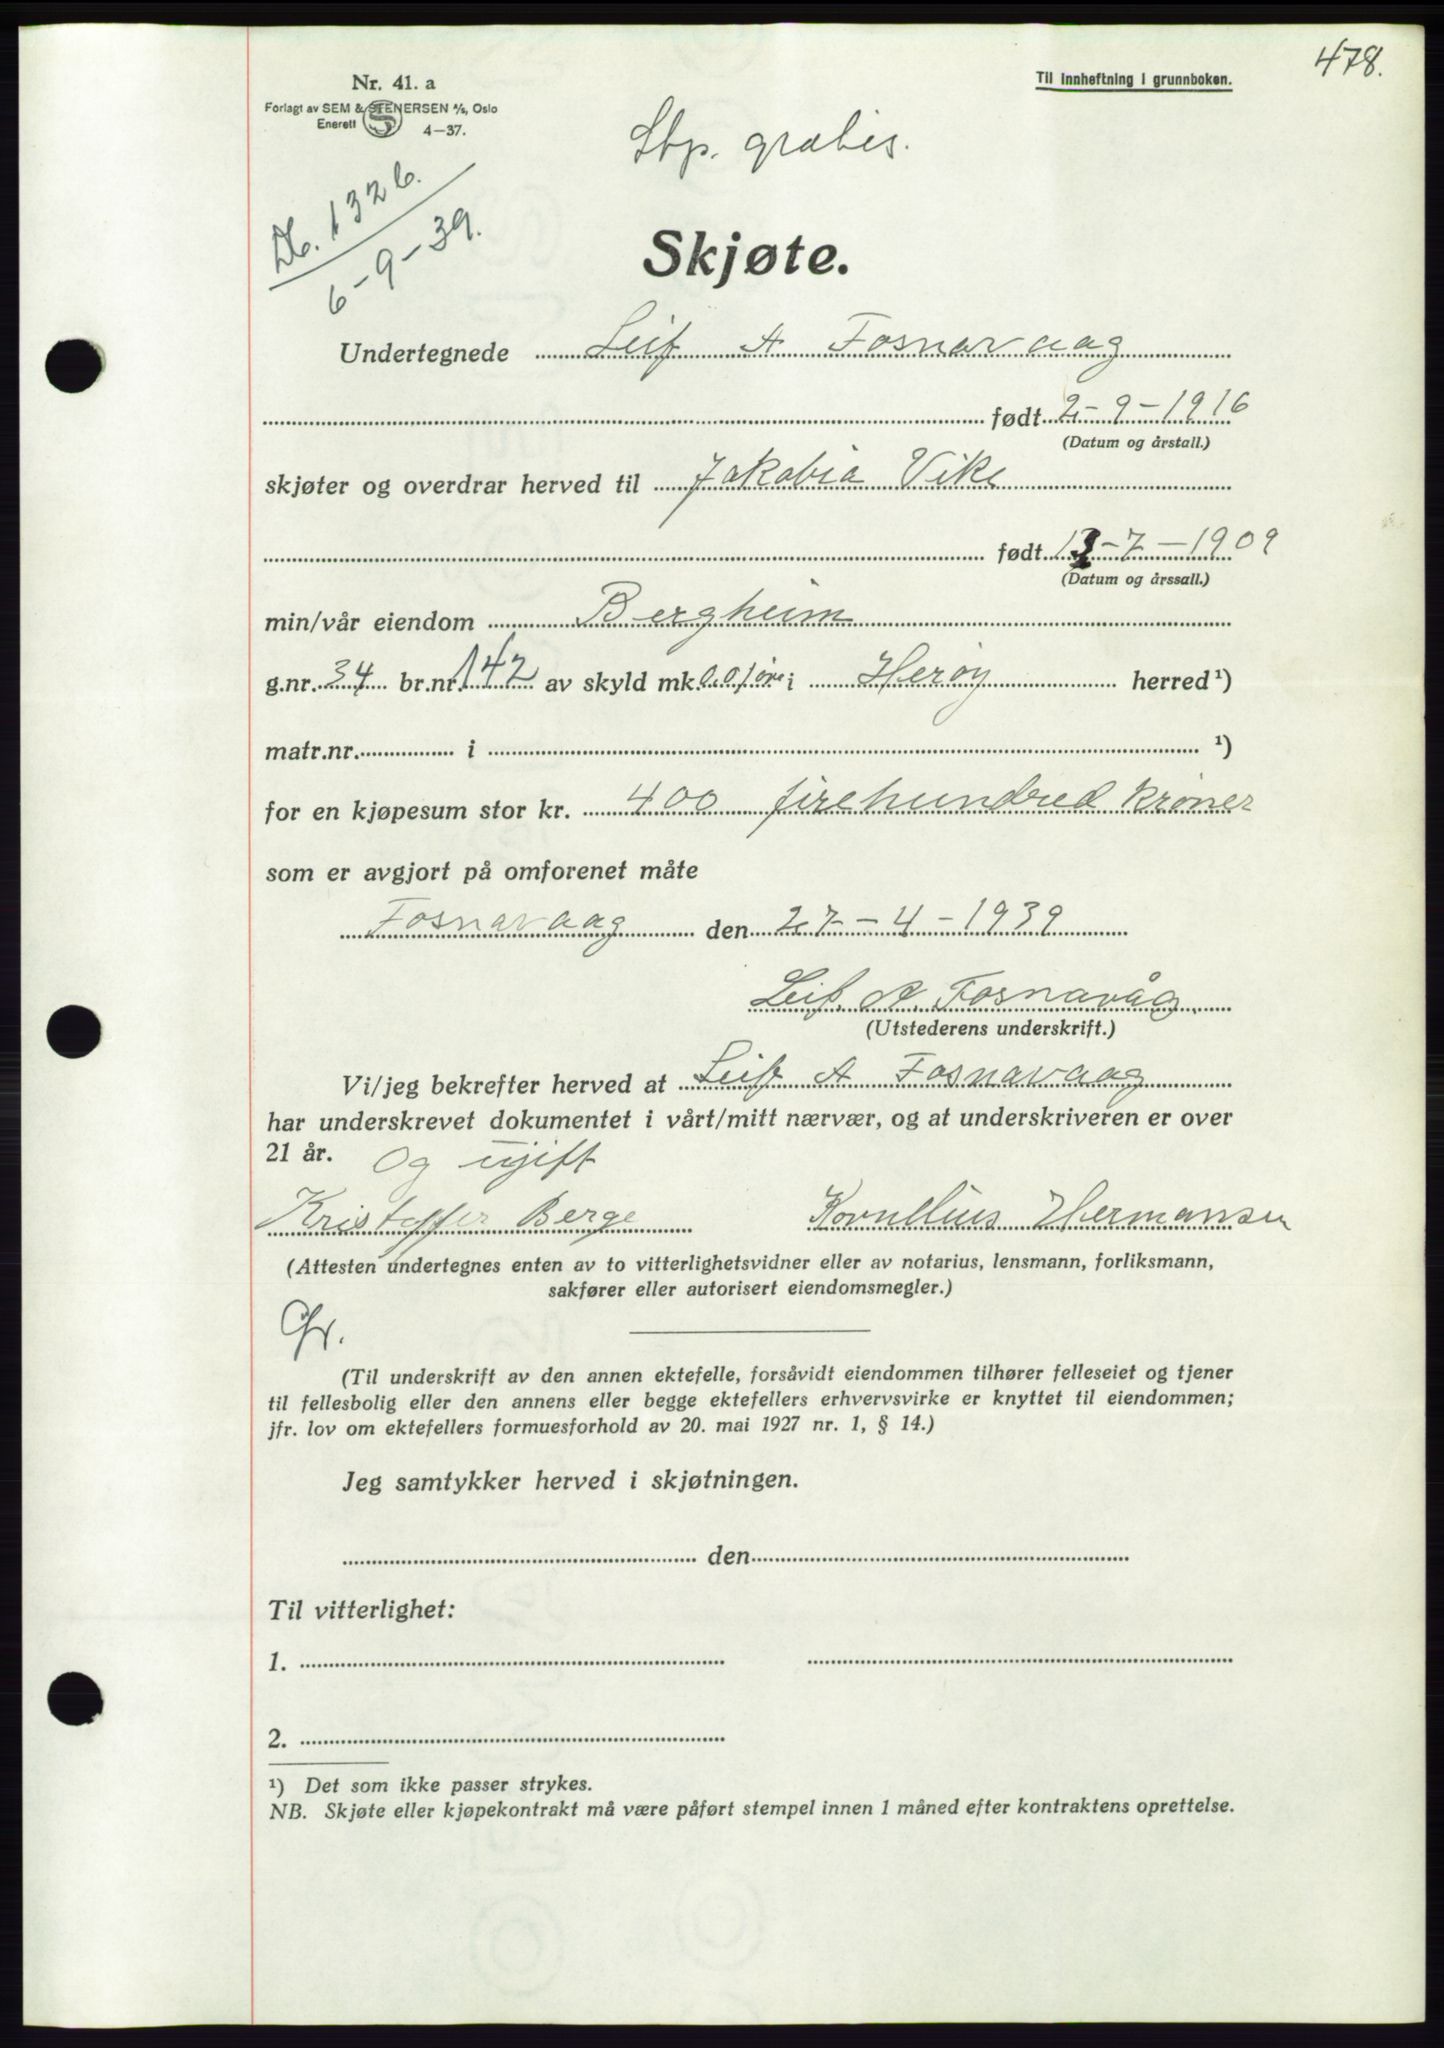 478.
Nr. 41. a
Til innheftning i grunnboken.
Forlagt av SEM & STENERSEN A/S, Oslo
Enerett
4-37.
Stp. gratis.
Db. 1326.
6-9-39.
Skjøte.
Undertegnede Leif A Fosnavaag
født 2-9-1916
(Datum og årstall.)
skjøter og overdrar herved til Jakobia Vike
født 13-7-1909
(Datum og årssall.)
min/vår eiendom Bergheim
g.nr. 34 br.nr. 142 av skyld mk. 0.01 øre i Herøy herred¹)
matr.nr. i ¹)
for en kjøpesum stor kr. 400 firehundred kroner
som er avgjort på omforenet måte
Fosnavaag den 27-4-1939
Leif. A. Fosnavåg.
(Utstederens underskrift.)
Vi/jeg bekrefter herved at Leif A Fosnavaag
har underskrevet dokumentet i vårt/mitt nærvær, og at underskriveren er over
21 år. Og ugift
Kristoffer Berge Kornelius Hermansen
(Attesten undertegnes enten av to vitterlighetsvidner eller av notarius, lensmann, forliksmann,
sakfører eller autorisert eiendomsmegler.)
(Til underskrift av den annen ektefelle, forsåvidt eiendommen tilhører felleseiet og tjener
til fellesbolig eller den annens eller begge ektefellers erhvervsvirke er knyttet til eiendommen;
jfr. lov om ektefellers formuesforhold av 20. mai 1927 nr. 1, § 14.)
Jeg samtykker herved i skjøtningen.
den
Til vitterlighet:
1.
2.
¹) Det som ikke passer strykes.
NB. Skjøte eller kjøpekontrakt må være påført stempel innen 1 måned efter kontraktens oprettelse.